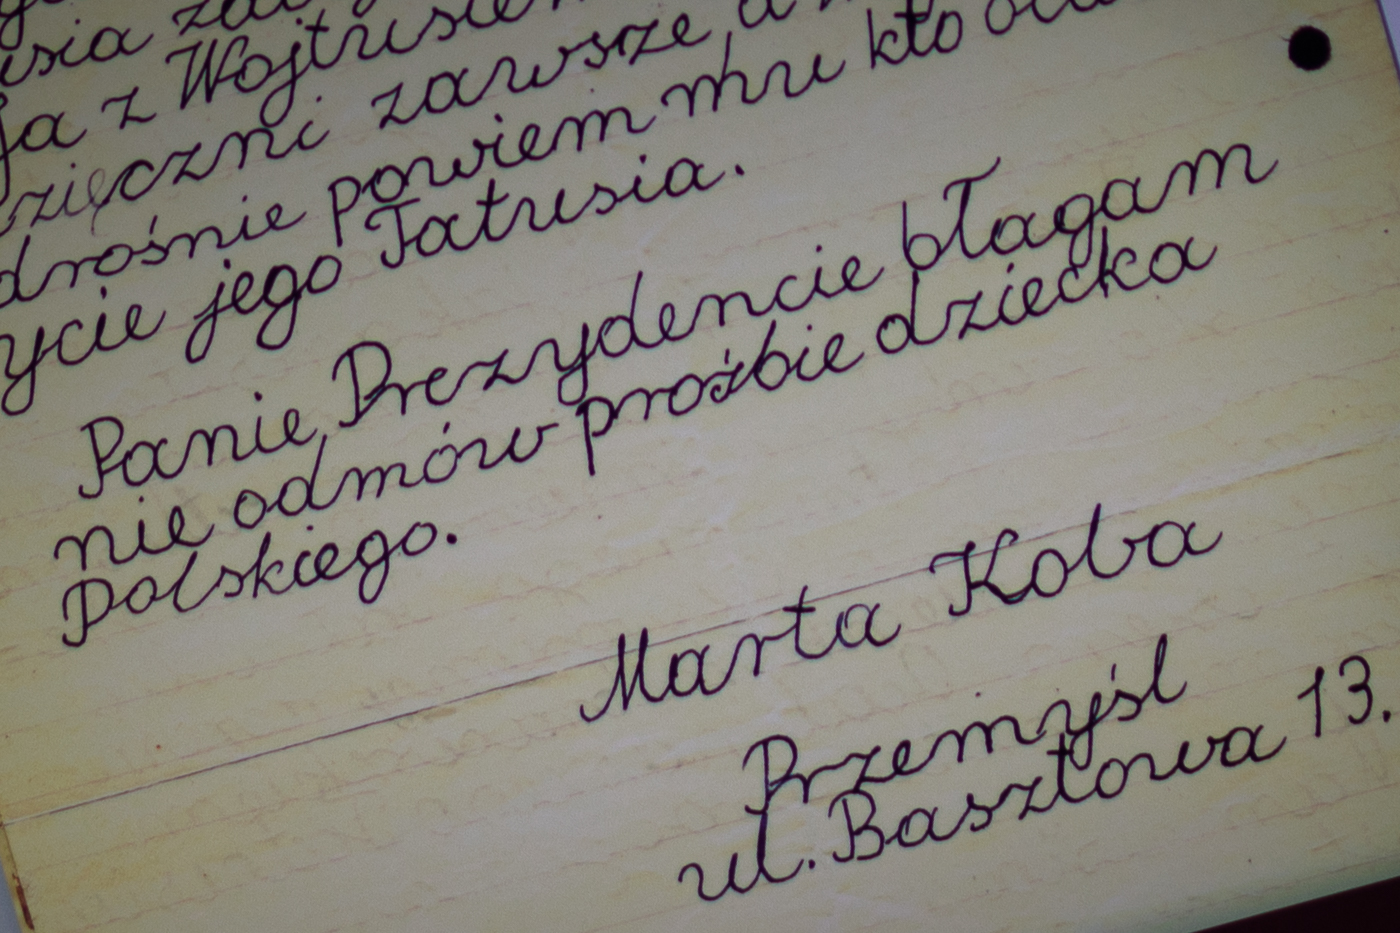 z Wojtusiem
zawsze
drośnie powiem mu kto
ycie jego Tatusia.
Panie Prezydencie błagam
nie odmów proźbie dziecka
Polskiego.
Marta Koba
Przemyśl
ul. Basztowa 13.